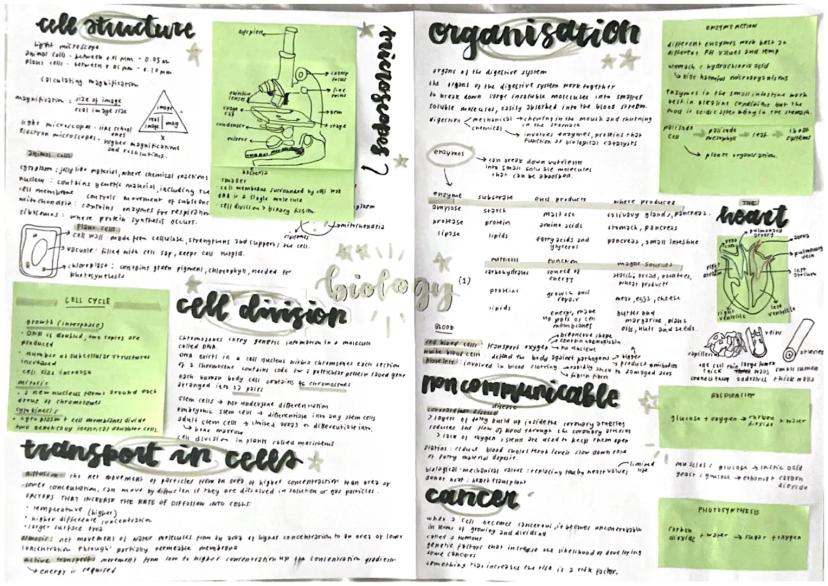 cell structure
light microscope
calculating magnification
magnification : size of image
real image size
image
real size
mag
eyepiece
coarse focus
fine focus
arm
stage
condenser
mirror
microscopes
bacteria
smaller
cell membrane surrounded by cell wall
DNA is a single molecule
cell division > binary fission
animal cell
cytoplasm : jelly like material, where chemical reactions
nucleus : contains genetic material, including the
cell membrane controls movement of substances
mitochondria : contains enzymes for respiration
ribosomes : where protein synthesis occurs.
plant cell
cell wall : made from cellulose, strengthens and supports the cell.
vacuole : filled with cell sap, keeps cell turgid.
chloroplast : contains green pigment, chlorophyll, needed for
photosynthesis
ribosomes
mitochondria
biology (1)
CELL CYCLE
growth (interphase)
DNA is doubled, two copies are
produced
number of subcellular structures
increased
cell size increase
mitosis
a new nucleus forms around each
group of chromosomes
cytokinesis
cytoplasm + cell membranes divide
two genetically identical daughter cells
cell division
chromosomes carry genetic information in a molecule
called DNA
DNA exists in a cell nucleus within chromosomes each section
of a chromosome contains code for a particular protein called gene
each human body cell contains 46 chromosomes
arranged in 23 pairs
stem cells → not undergone differentiation
embryonic stem cells → differentiate into any stem cells
adult stem cells → limited areas of differentiation,
bone marrow
cell division in plants called meristems
transport in cells
diffusion : the net movement of particles from an area of higher concentration to an area of
lower concentration, can move by diffusion if they are dissolved in solution or gas particles.
FACTORS THAT INCREASE THE RATE OF DIFFUSION INTO CELLS
temperature (higher)
higher difference concentration
larger surface area
osmosis : net movement of water molecules from an area of higher concentration to an area of lower
concentration through partially permeable membrane
active transport : movement from low to higher concentration up the concentration gradient
energy is required
organisation
organs of the digestive system
the organs of the digestive system work together
to break down large insoluble molecules into smaller
soluble molecules, easily absorbed into the blood stream.
digestion mechanical → chewing in the mouth and churning
in the stomach
chemical → involves enzymes, proteins that
function as biological catalysts
enzymes → can break down nutrients
into small soluble molecules
that can be absorbed.
enzyme substrate end products where produced
amylase starch maltose salivary glands, pancreas.
protease protein amino acids stomach, pancreas
lipase lipids fatty acids and glycerol pancreas, small intestine
nutrient function major sources
carbohydrates source of energy
proteins growth and repair meat, eggs, cheese
lipids energy, make up part of cell membranes butter and margarine, plant oils, nuts and seeds.
BLOOD
red blood cells : transport oxygen
biconcave shape
contain haemoglobin
no nucleus
white blood cells defend the body against pathogens
bigger
platelets involved in blood clotting
ENZYME ACTION
different enzymes work best at
different pH values and temp
stomach → hydrochloric acid
enzymes in the small intestine work
best in alkaline conditions but the
food is acidic after being in the stomach.
palisade cell → palisade mesophyll → leaf → shoot systems
plant organisation.
THE
heart
pulmonary artery
aorta
pulmonary vein
left atrium
left ventricle
right ventricle
veins
arteries
capillaries
small lumen
thick walls
non communicable
disease
coronary disease
layers of fatty build up inside the coronary arteries
reduces the flow of blood through the coronary arteries
lack of oxygen : stents are used to keep them open
statins : reduce blood cholesterol levels slow down rate
of fatty material deposit.
donor heart : heart transplant
limited life
cancer
when a cell becomes cancerous, it becomes uncontrollable
in terms of growing and dividing
called a tumour
genetic factors that increase the likelihood of developing
some cancers
something that increases the risk is a risk factor.
RESPIRATION
glucose + oxygen → carbon dioxide + water
muscles : glucose → lactic acid
yeast : glucose → ethanol + carbon dioxide
PHOTOSYNTHESIS
carbon dioxide + water → sugar + oxygen